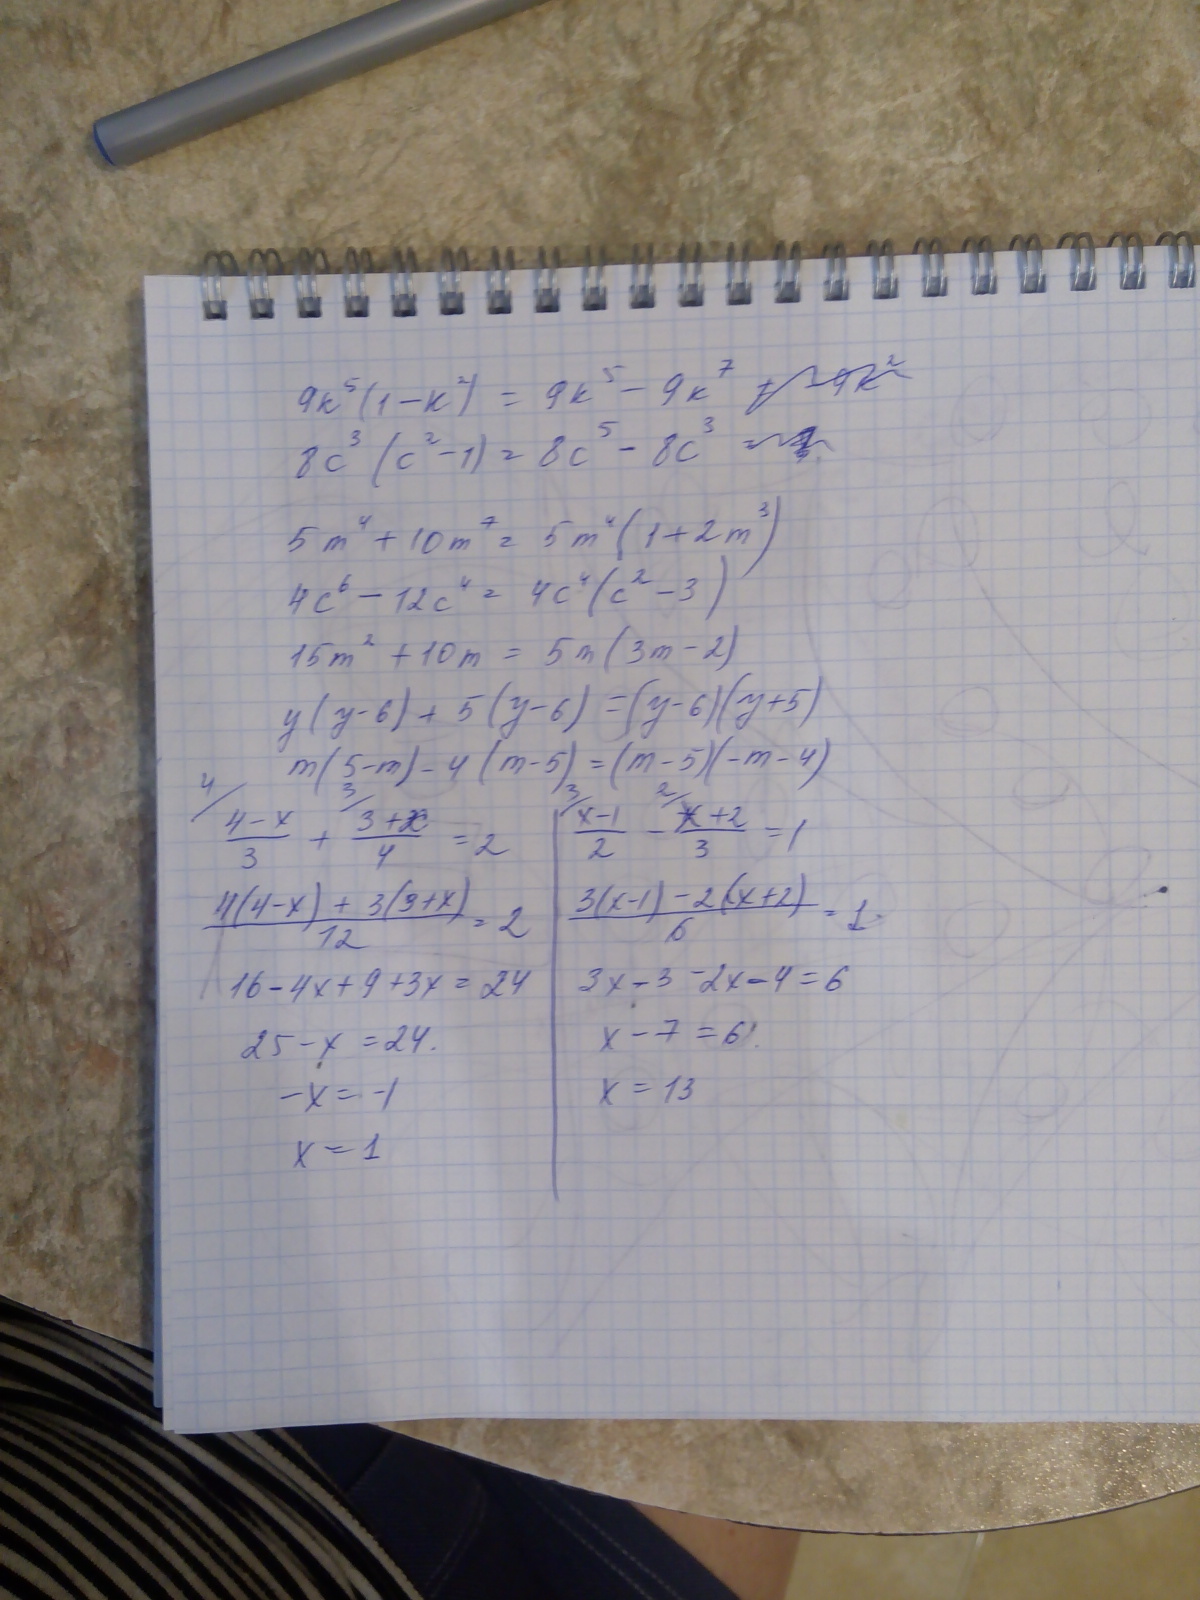 9к⁵(1-к²) = 9к⁵ - 9к⁷
8c³(c²-1) = 8c⁵ - 8c³
5m⁴ + 10m⁷ = 5m⁴(1 + 2m³)
4c⁶ - 12c⁴ = 4c⁴(c² - 3)
15m² + 10m = 5m(3m - 2)
y(y-6) + 5(y-6) = (y-6)(y+5)
m(5-m) - 4(m-5) = (m-5)(-m-4)
4/ (4-x)/3 + 3/ (3+x)/4 = 2
(4(4-x) + 3(3+x))/12 = 2
16 - 4x + 9 + 3x = 24
25 - x = 24.
-x = -1
x = 1
3/ (x-1)/2 - 2/ (x+2)/3 = 1
(3(x-1) - 2(x+2))/6 = 1
3x - 3 - 2x - 4 = 6
x - 7 = 6
x = 13